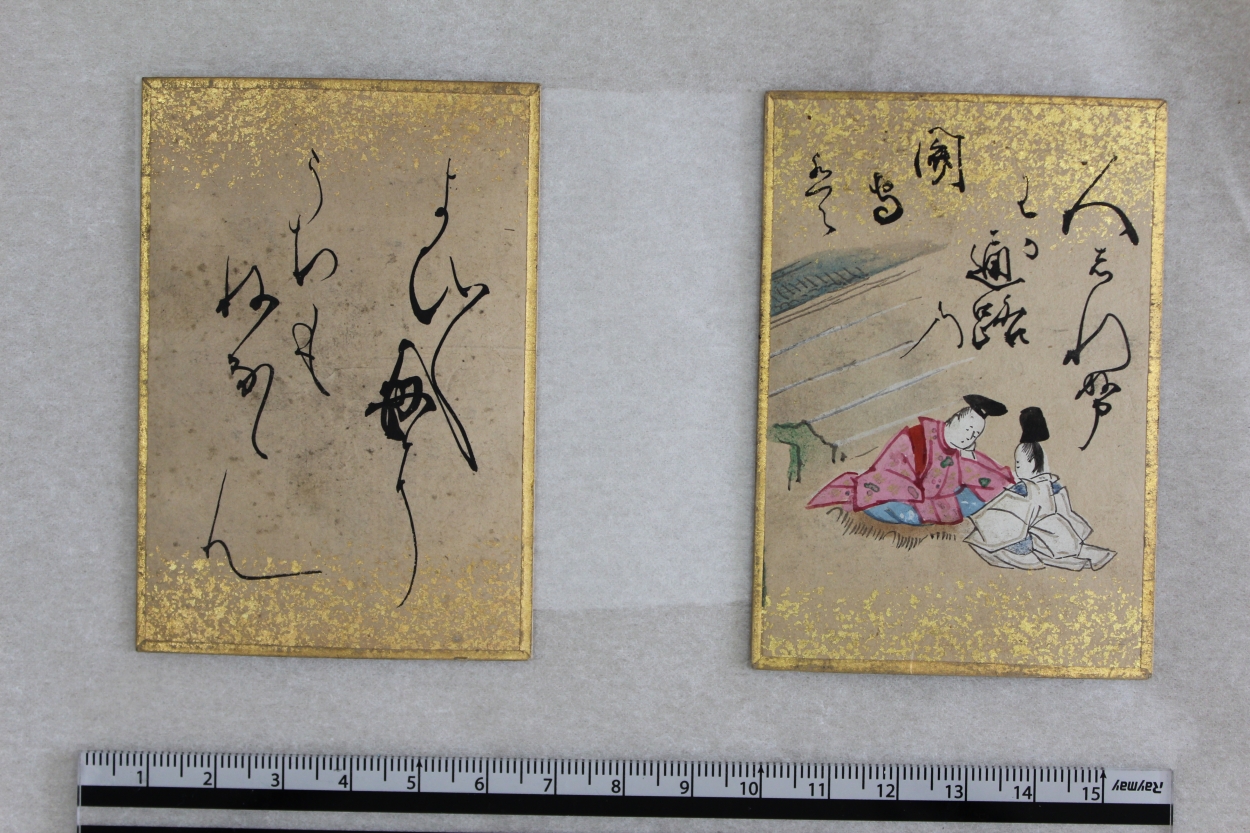 人しれぬ
わか通路の
関
守
は
よひ〳〵毎に
うちも
ねなゝ
ん
1 2 3 4 5 6 7 8 9 10 11 12 13 14 15 Raymay